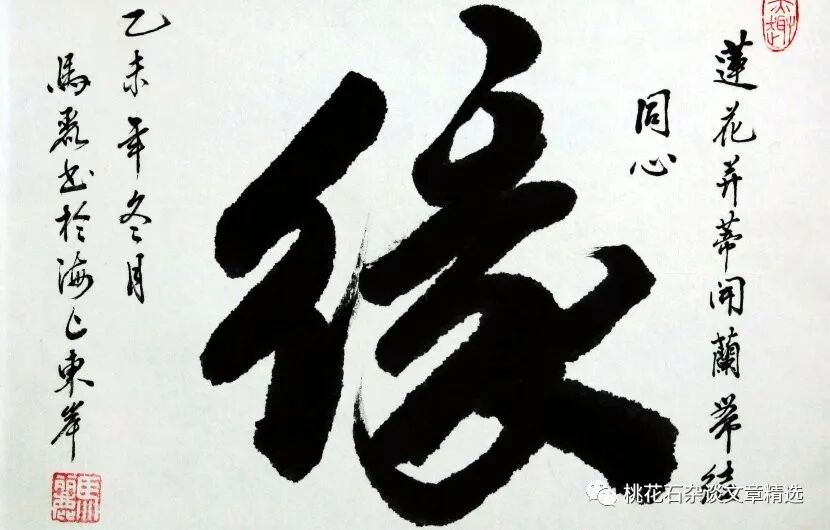 蓮花并蒂開蘭帶結
同心
緣
乙未年冬月
馬麗书於海上東岸
馬麗
桃花石杂谈文章精选